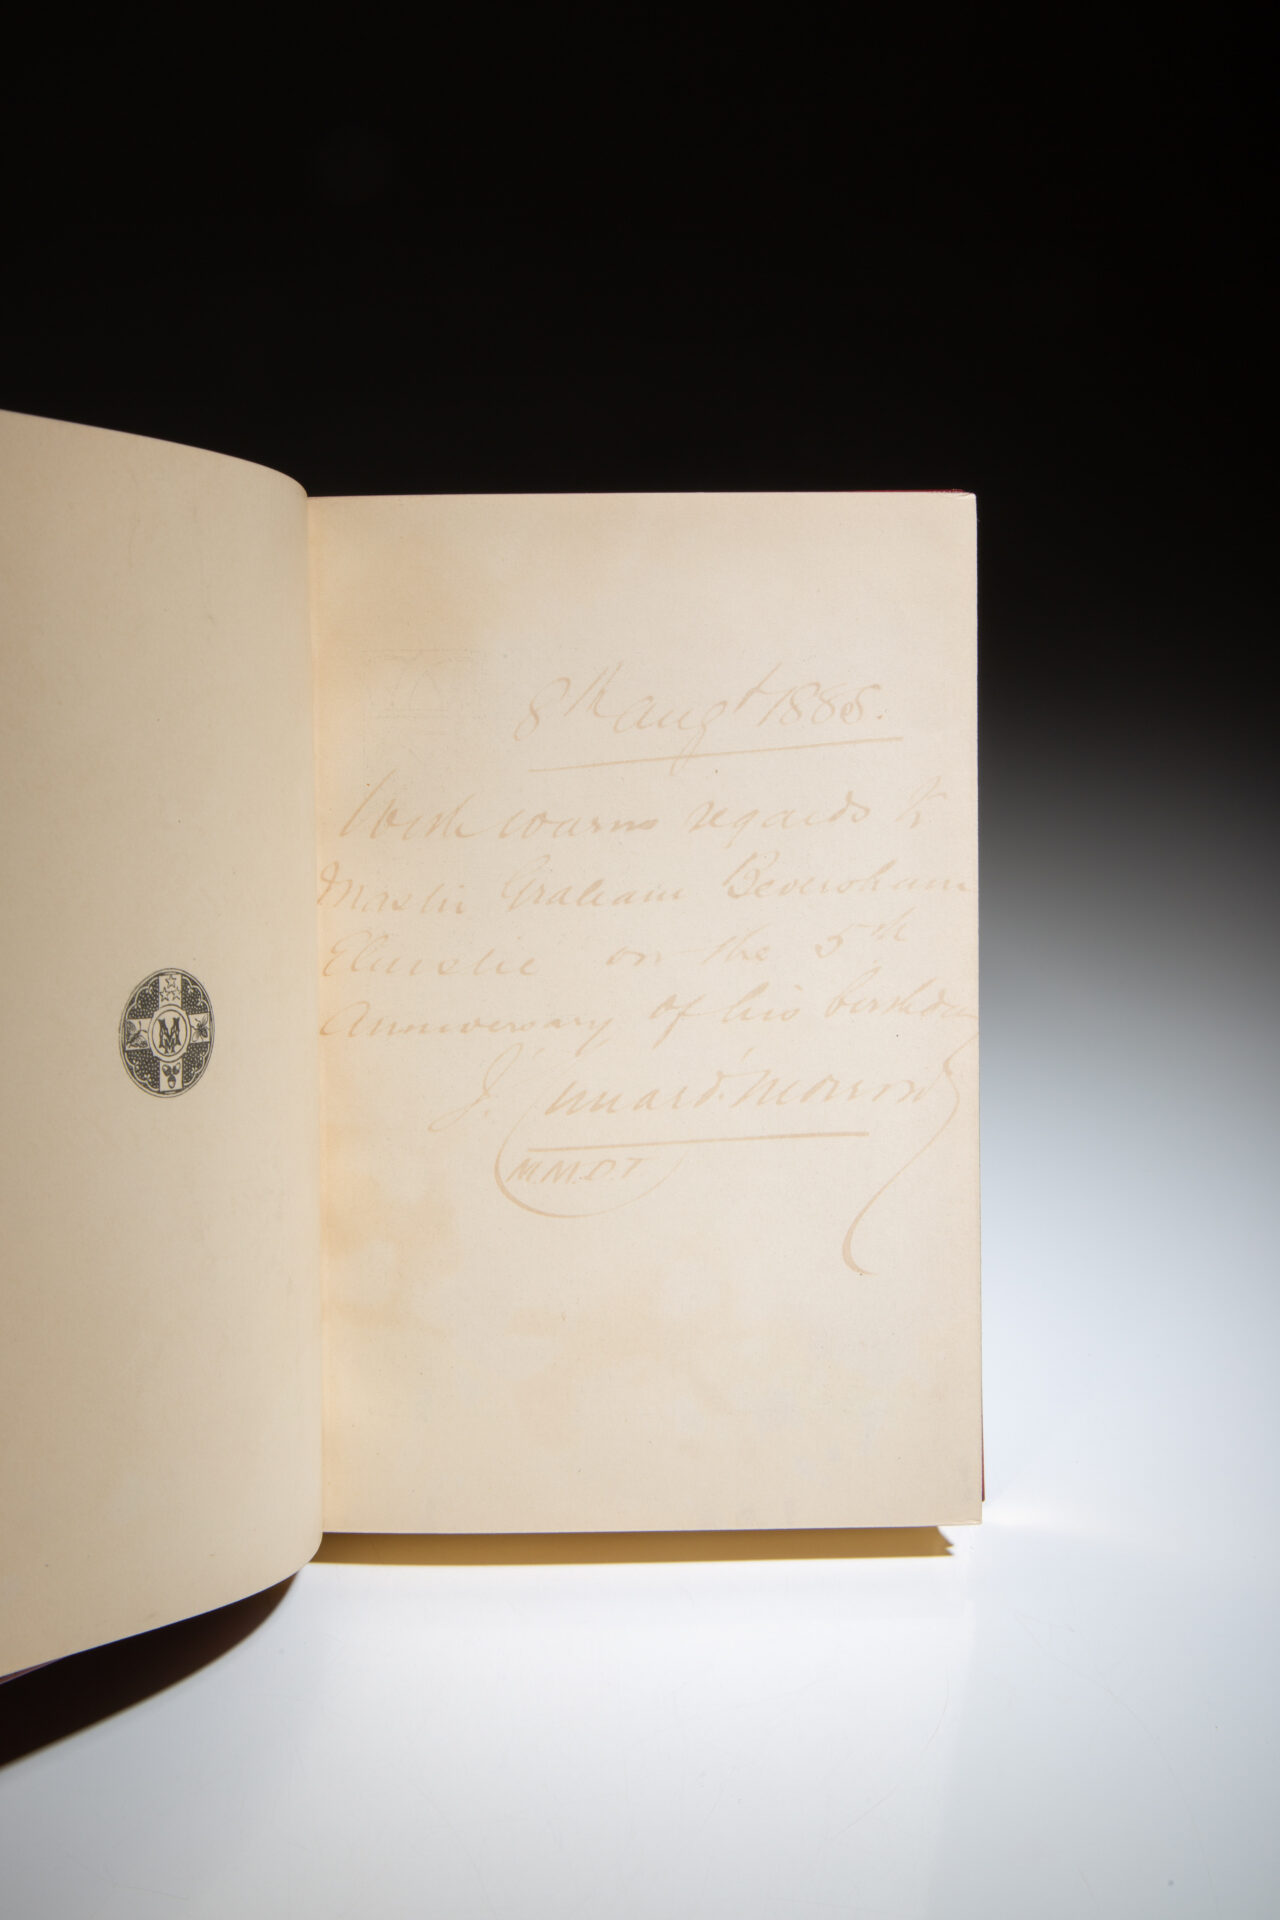 8th Augt 1888.
With warm regards to
Master Graham Beversham
Elmslie on the 5th
Anniversary of his birthday
J. Cunard
M.M.D.T
MM